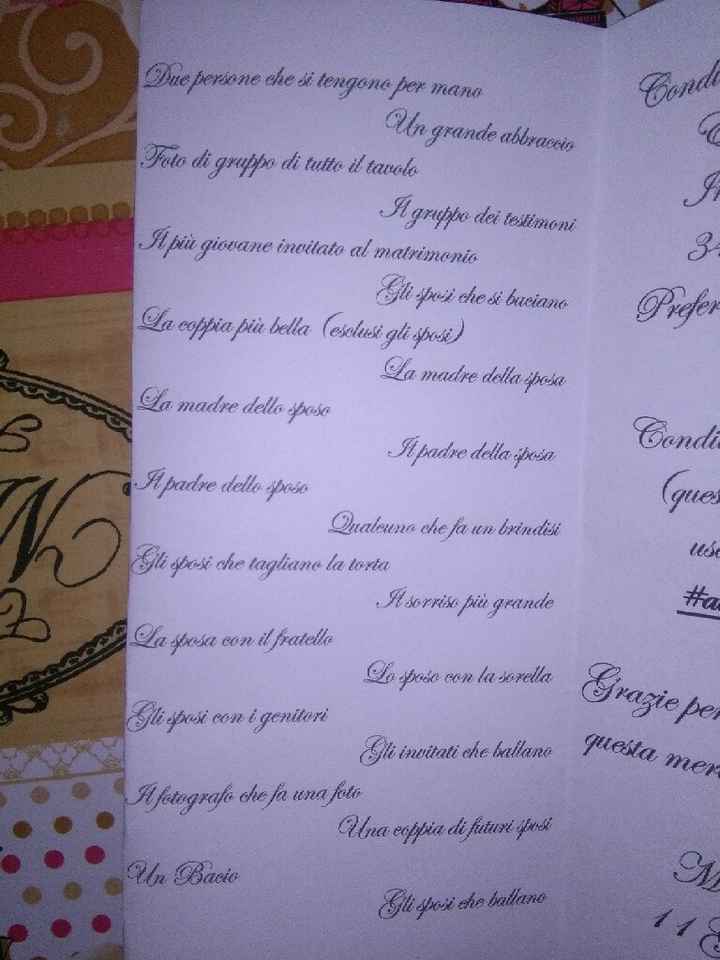 Due persone che si tengono per mano
Un grande abbraccio
Foto di gruppo di tutto il tavolo
Il gruppo dei testimoni
Il più giovane invitato al matrimonio
Gli sposi che si baciano
La coppia più bella (esclusi gli sposi)
La madre della sposa
La madre dello sposo
Il padre della sposa
Il padre dello sposo
Qualcuno che fa un brindisi
Gli sposi che tagliano la torta
Il sorriso più grande
La sposa con il fratello
Lo sposo con la sorella
Gli sposi con i genitori
Gli invitati che ballano
Il fotografo che fa una foto
Una coppia di futuri sposi
Un Bacio
Gli sposi che ballano
Grazie per
questa